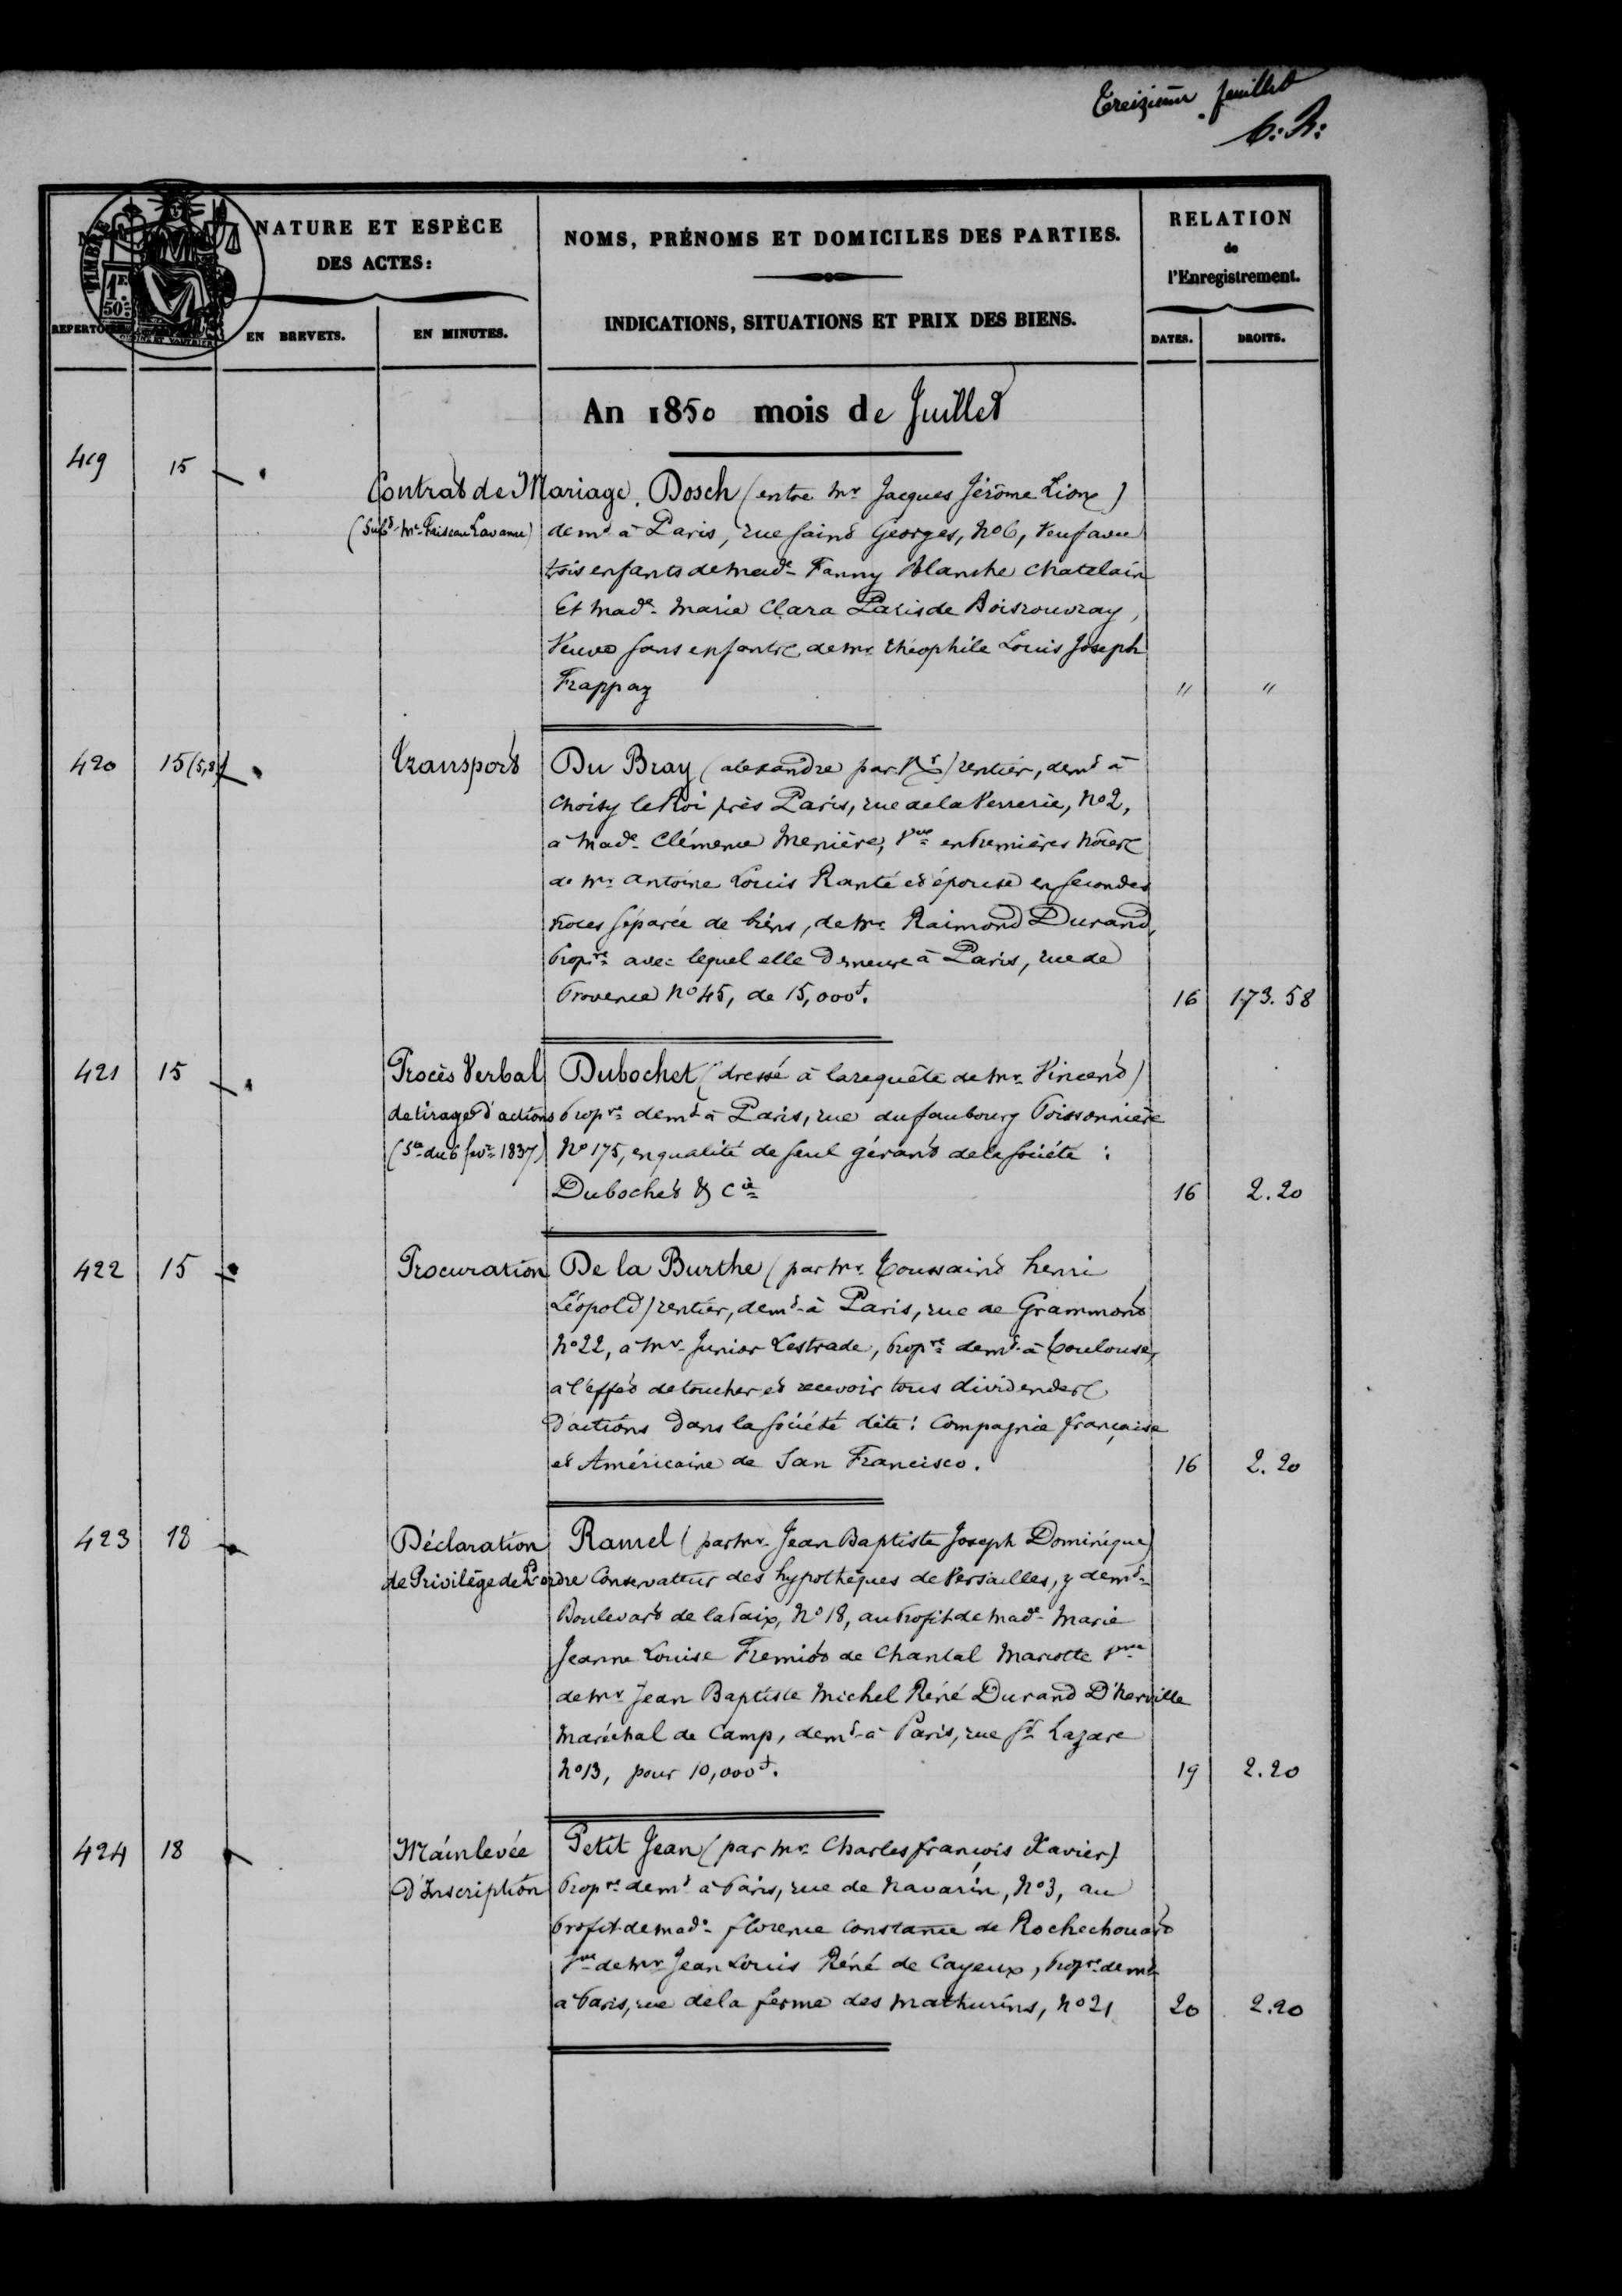 Treizième feuillet
C: R:
NATURE ET ESPÈCE
DES ACTES:
NOMS, PRÉNOMS ET DOMICILES DES PARTIES.
INDICATIONS, SITUATIONS ET PRIX DES BIENS.
RELATION
de
l'Enregistrement.
TIMBRE
1F.
50c.
REPERTOIRE
EN BREVETS.
EN MINUTES.
DATES.
DROITS.
An 1850 mois de Juillet
419 15 Contrat de Mariage. Dosch (entre Mr Jacques Jérôme Lion)
(Subt Mr Faiseau Lavanne) demt à Paris, rue Saint Georges, No 6, Veuf avec
trois enfants de Made Fanny Blanche Chatelain
Et Made Marie Clara Paris de Boisrouvray,
Veuve sans enfants de Mr Théophile Louis Joseph
Frappaz " "
420 15 (5,8) Transport Du Bray (alexandre par Mr) rentier, demt à
Choisy le Roi près Paris, rue de la Verrerie, No 2,
à Made Clémence Menière, Vve en premières noces
de Mr Antoine Louis Ranté et épouse en secondes
noces séparée de biens, de Mr Raimond Durand,
Propre avec lequel elle demeure à Paris, rue de
Provence No 45, de 15,000f. 16 173.58
421 15 Procès Verbal Dubochet (dressé à la requête de Mr Vincent)
de tirage d'actions Propre demt à Paris, rue du faubourg Poissonnière
(Sté du 6 fevr 1837) No 175, en qualité de seul gérant de la Société :
Dubochet & Cie 16 2.20
422 15 Procuration De la Burthe (par Mr Toussaint henri
Léopold) rentier, demt à Paris, rue de Grammont
No 22, à Mr Junior Lestrade, Propre demt à Toulouse,
à l'effet de toucher et recevoir tous dividendes
d'actions dans la Société dite : Compagnie française
et Américaine de San Francisco. 16 2.20
423 18 Déclaration Ramel (par Mr Jean Baptiste Joseph Dominique)
de Privilège de 2d ordre Conservateur des hypothèques de Versailles, y demt
Boulevart de la Paix, No 18, au Profit de Made Marie
Jeanne Louise Fremiot de Chantal Marcotte Vve
de Mr Jean Baptiste Michel Réné Durand D'herville
Maréchal de Camp, demt à Paris, rue St Lazare
No 13, pour 10,000f. 19 2.20
424 18 Mainlevée Petit Jean (par Mr Charles françois Xavier)
D'Inscription Propre demt à Paris, rue de Navarin, No 3, au
Profit de Made florence Constance de Rochechouart
Vve de Mr Jean Louis Réné de Cayeux, Propre demt
à Paris, rue de la ferme des Mathurins, No 21 20 2.20